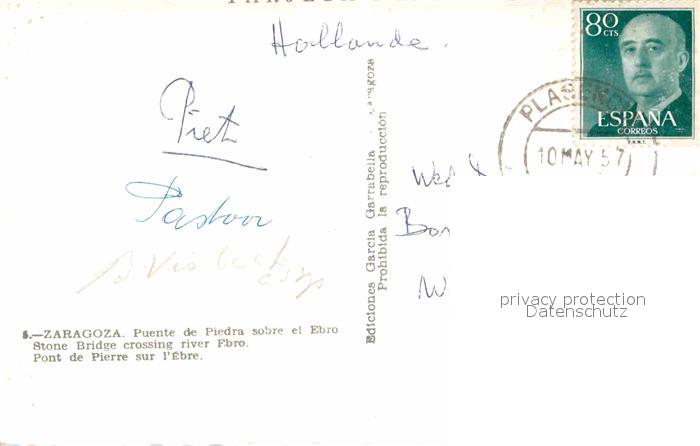 Hollande.
80 CTS
ESPAÑA
CORREOS
F.N.M.T.
PLASEN
10 MAY 57
Piet
Pastoor
Ediciones Garcia Garrabella - Zaragoza
Prohibida la reproducción
Bon
privacy protection
Datenschutz
5.—ZARAGOZA. Puente de Piedra sobre el Ebro
Stone Bridge crossing river Ebro.
Pont de Pierre sur l'Èbre.